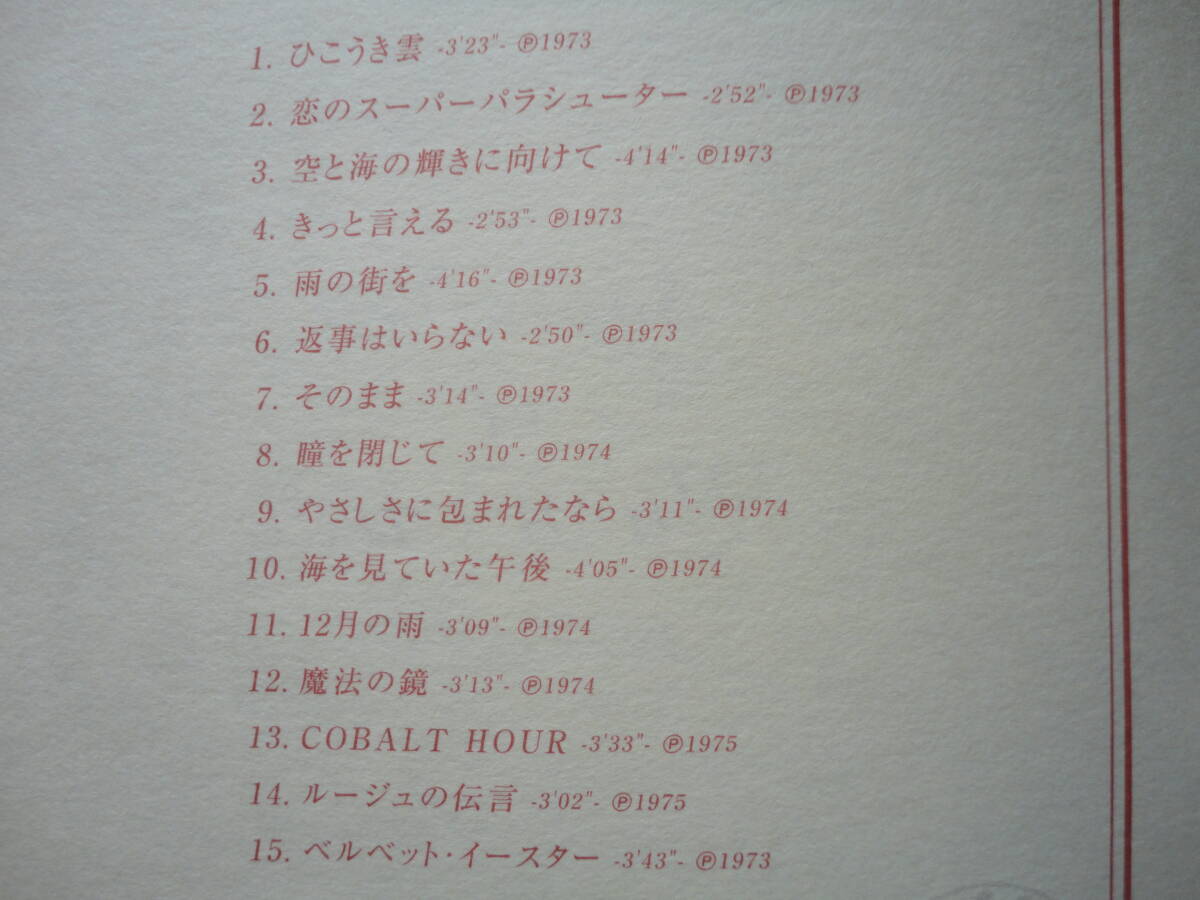 1. ひこうき雲 -3'23"- Ⓟ1973
2. 恋のスーパーパラシューター -2'52"- Ⓟ1973
3. 空と海の輝きに向けて -4'14"- Ⓟ1973
4. きっと言える -2'53"- Ⓟ1973
5. 雨の街を -4'16"- Ⓟ1973
6. 返事はいらない -2'50"- Ⓟ1973
7. そのまま -3'14"- Ⓟ1973
8. 瞳を閉じて -3'10"- Ⓟ1974
9. やさしさに包まれたなら -3'11"- Ⓟ1974
10. 海を見ていた午後 -4'05"- Ⓟ1974
11. 12月の雨 -3'09"- Ⓟ1974
12. 魔法の鏡 -3'13"- Ⓟ1974
13. COBALT HOUR -3'33"- Ⓟ1975
14. ルージュの伝言 -3'02"- Ⓟ1975
15. ベルベット・イースター -3'43"- Ⓟ1973